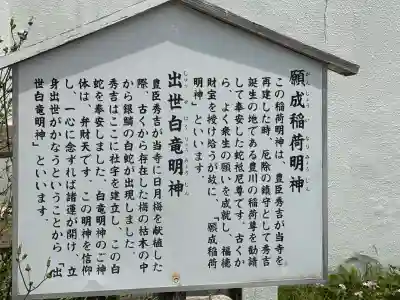 願成稲荷明神
がんじょういなりみょうじん
この稲荷明神は、豊臣秀吉が当寺を
再建した時、厄除の鎮守として秀吉
誕生の地である豊川の稲荷尊を勧請
して奉安した蛇枳尼尊です。古くか
ら、よく衆生の願いを成就し、福徳
財宝を授け給うが故に、「願成稲荷
明神」といいます。
出世白竜明神
しゅっせはくりゅうみょうじん
豊臣秀吉が当寺に日月梅を献植した
際、古くから存在した梅の枯木の中
から銀鱗の白蛇が出現しました。
秀吉はここに社字を建立し、この白
蛇を奉安しました。白竜明神のご神
体は、弁財天です。この明神を信仰
し、一心に念ずれば諸運が開け、立
身出世がかなうということから「出
世白竜明神」といいます。